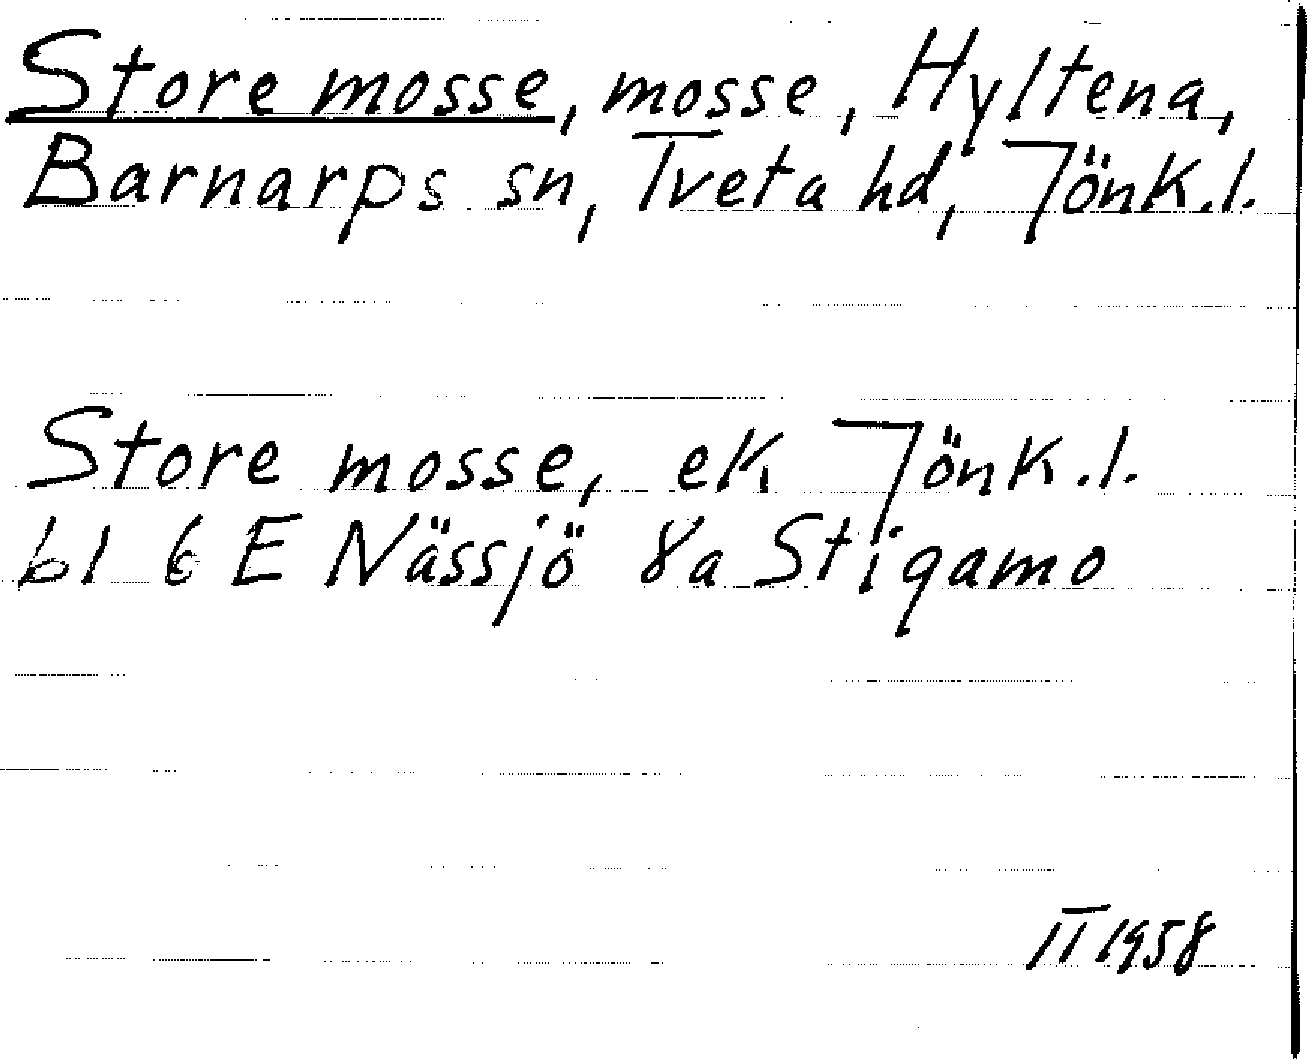 Store mosse, mosse, Hyltena,
Barnarps sn, Tveta hd, Jönk.l.
Store mosse, ek Jönk.l.
bl 6 E Nässjö 8a Stigamo
II 1958